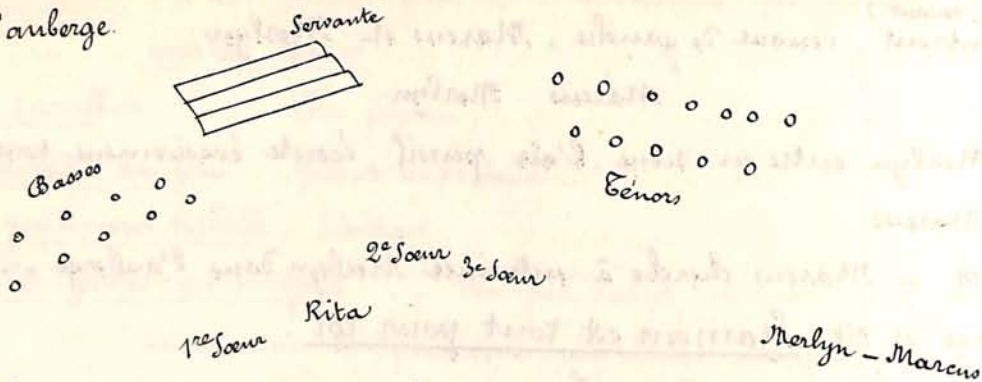 l'auberge.
Servante
Basses
Ténors
2e Soeur 3e Soeur
Rita
1re Soeur
Merlyn – Marcus